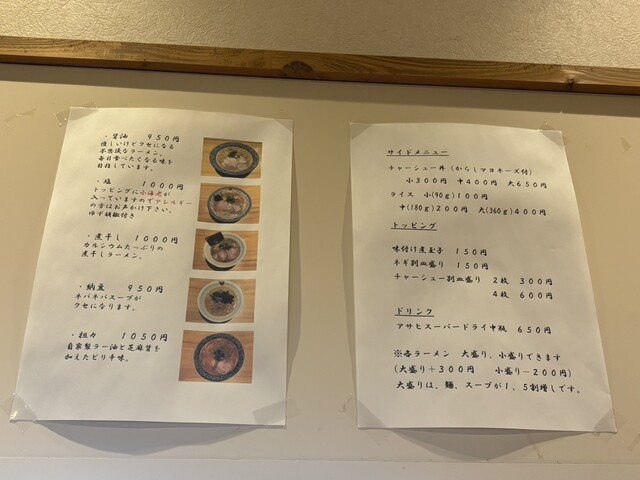 ・醤油　９５０円
優しいけどクセになる
不思議なラーメン。
毎日食べたくなる味を
目指しています。
・塩　１０００円
トッピングに小海老が
入っていますのでアレルギー
の方はお声かけ下さい。
ゆず胡椒付き
・煮干し　１０００円
カルシウムたっぷりの
煮干しラーメン。
・納豆　９５０円
ネバネバスープが
クセになります。
・担々　１０５０円
自家製ラー油と芝麻醤を
加えたピリ辛味。
サイドメニュー
チャーシュー丼（からしマヨネーズ付）
小３００円　中４００円　大６５０
ライス　小(90ｇ)１００円
中(180ｇ)２００円　大(360ｇ)４００円
トッピング
味付け煮玉子　１５０円
ネギ別皿盛り　１５０円
チャーシュー別皿盛り　２枚　３００円
４枚　６００円
ドリンク
アサヒスーパードライ中瓶　６５０円
※各ラーメン　大盛り、小盛りできます
（大盛り＋３００円　小盛り－２００円）
大盛りは、麺、スープが１．５割増しです。